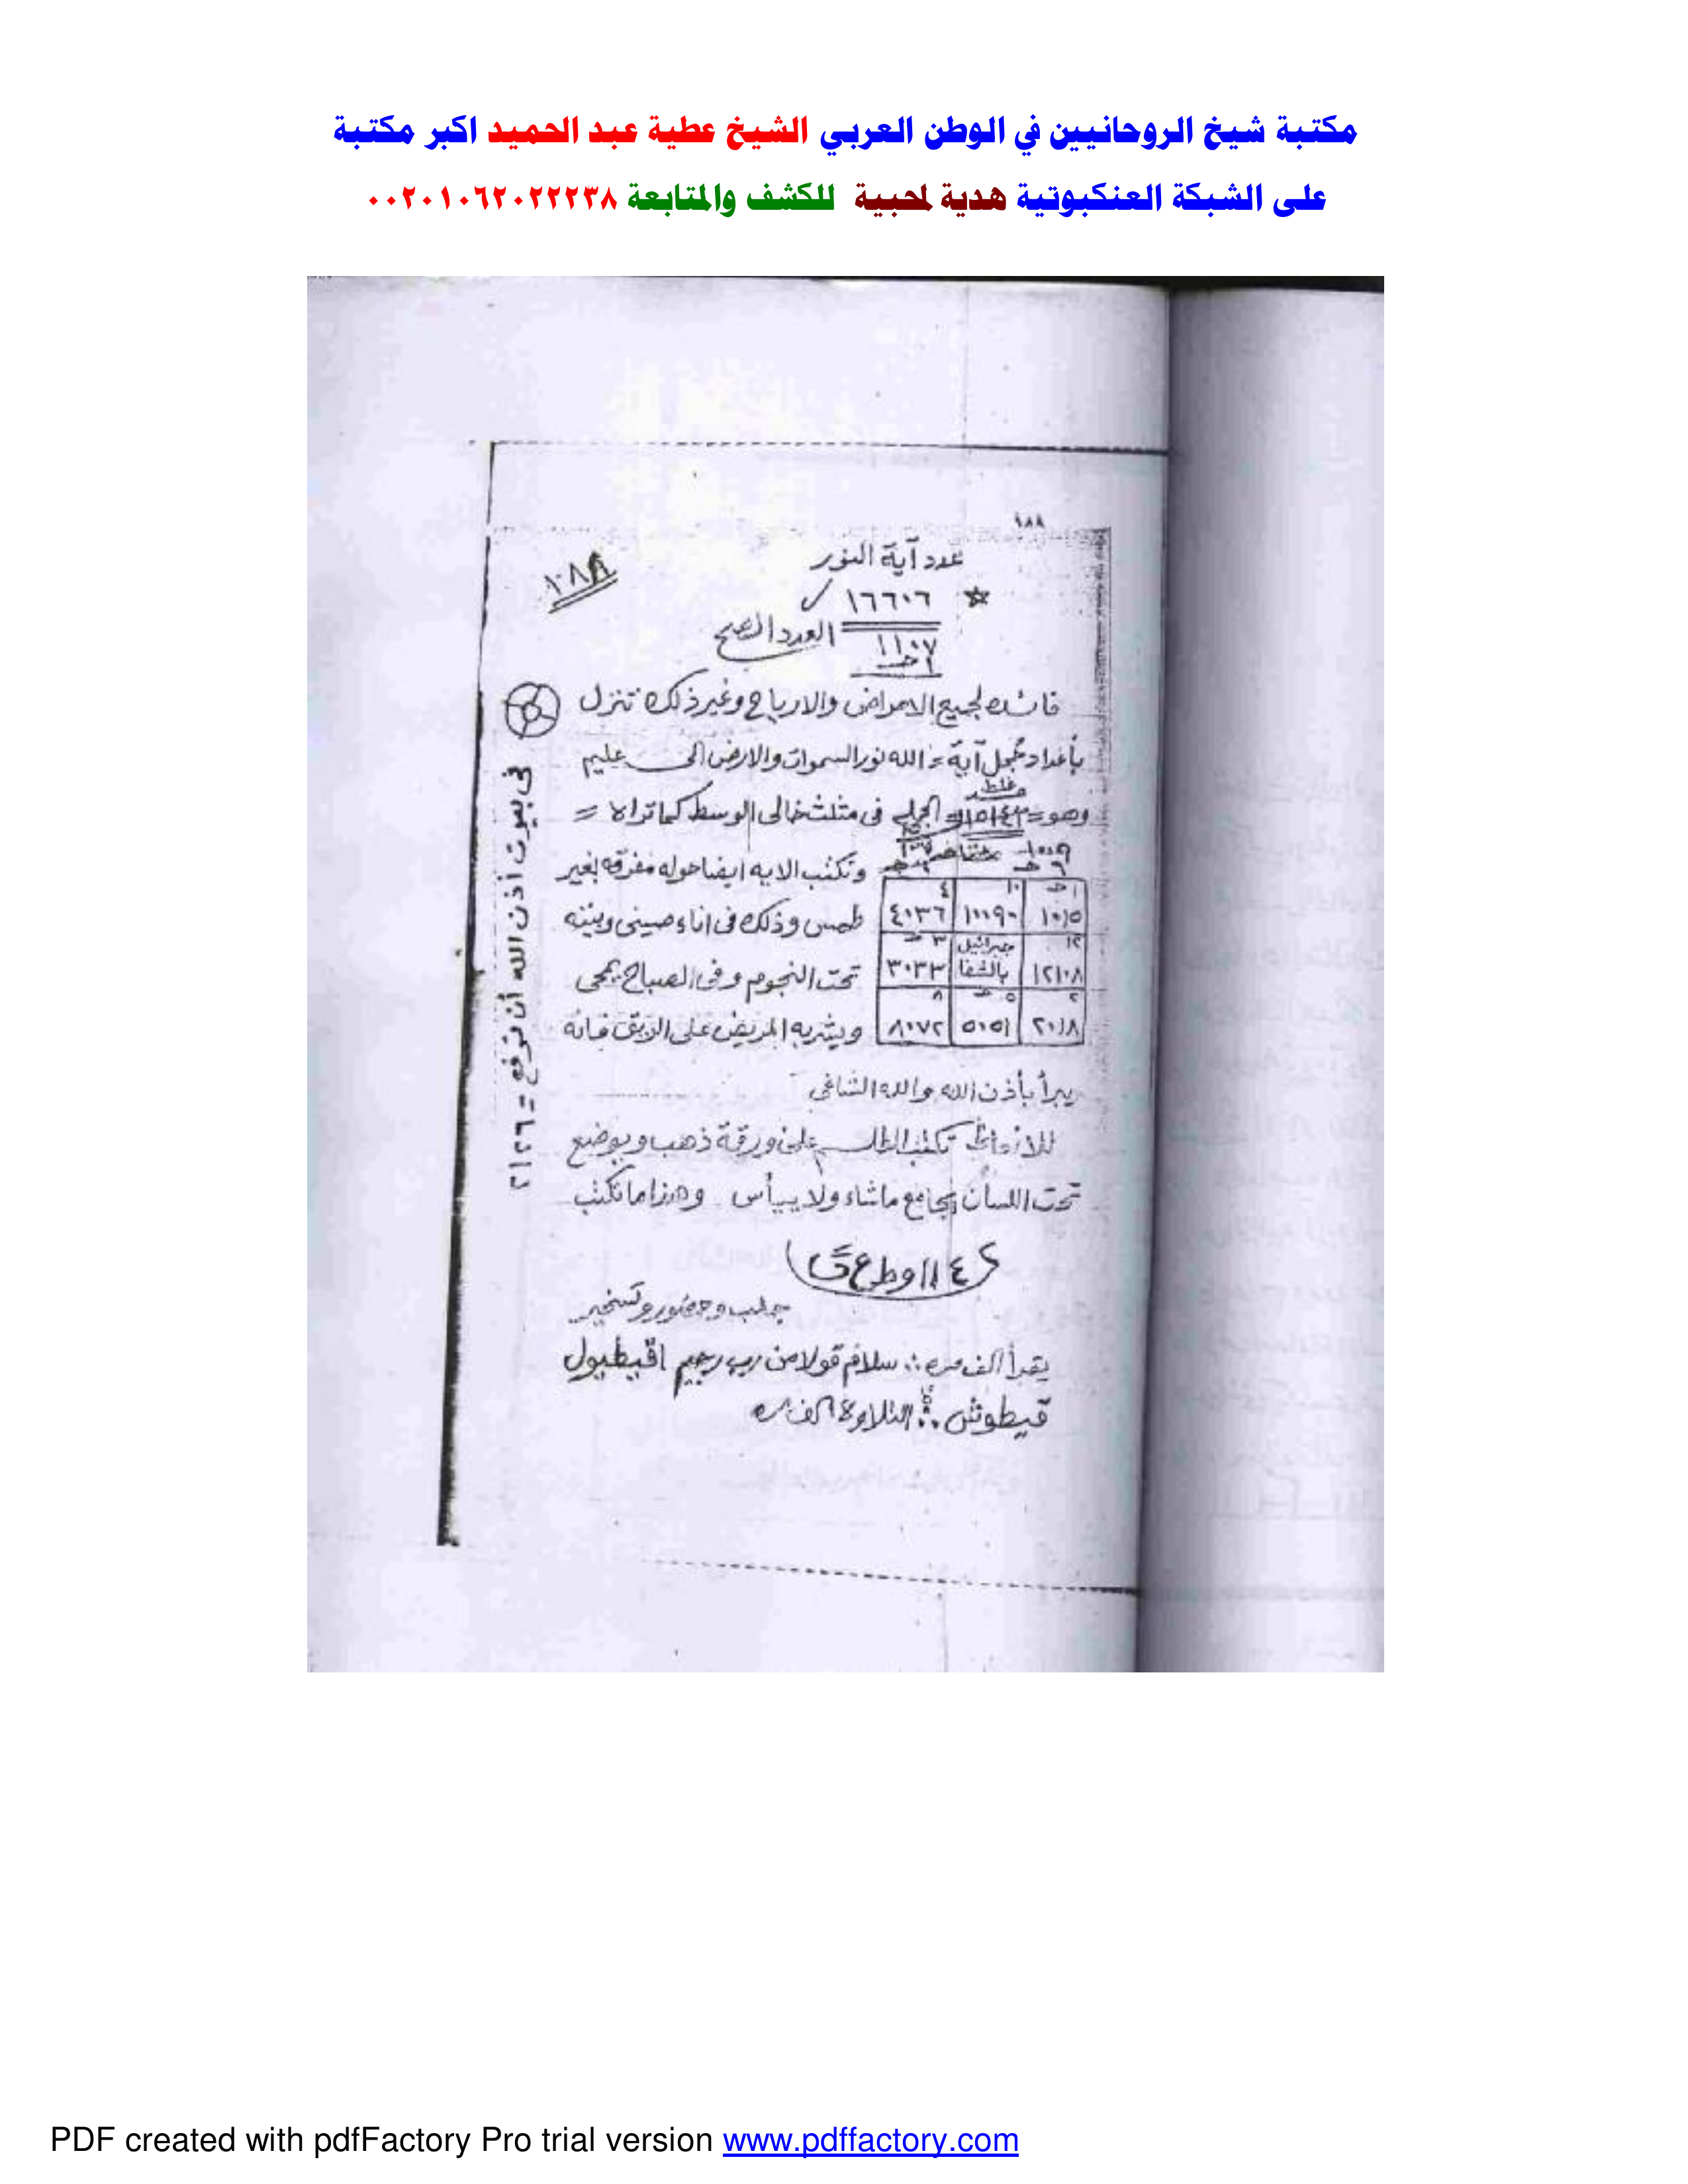 مكتبة شيخ الروحانيين في الوطن العربي الشيخ عطية عبد الحميد اكبر مكتبة
على الشبكة العنكبوتية هدية لمحبية للكشف والمتابعة ٠٠٢٠١٠٦٢٠٢٢٢٣٨
١٨٨
عدد آية النور
١٠٨٨
١٦٦٠٦
العدد الصح
١١٠٧
فائده لجميع الامراض والارياح وغير ذلك تنزل
بأعداد مجمل آية = الله نور السموات والارض الى عليم
غلط
وهو = ١٥١٤٣ = الجملى فى مثلث خالى الوسط كما تراه =
وتكتب الايه ايضا حوله مفرقه بغير
١ ١٠ ٤
١٠١٥ ١٠٠٩٠ ٤٠٣٦
طمس وذلك فى اناء صينى وبيته
١٢ جبرائيل ٣
١٢١٠٨ بالشفا ٣٠٣٣
تحت النجوم وفى الصباح يمحى
٢ ٥ ٨
٢٠١٨ ٥٠٥١ ٨٠٧٢
ويشربه المريض على الريق فانه
يبرأ بأذن الله والله الشافى
للانعاظ تكتب الطلسم على ورقة ذهب ويوضع
تحت اللسان يجامع ماشاء ولا ييأس وهذا ما تكتب
جلب وحضور وتسخير
يقرأ الف مره سلام قولا من رب رحيم اقيطيول
قيطوش التلاوة الف مره
فى بيوت أذن الله أن ترفع = ٢١٢٦
PDF created with pdfFactory Pro trial version www.pdffactory.com